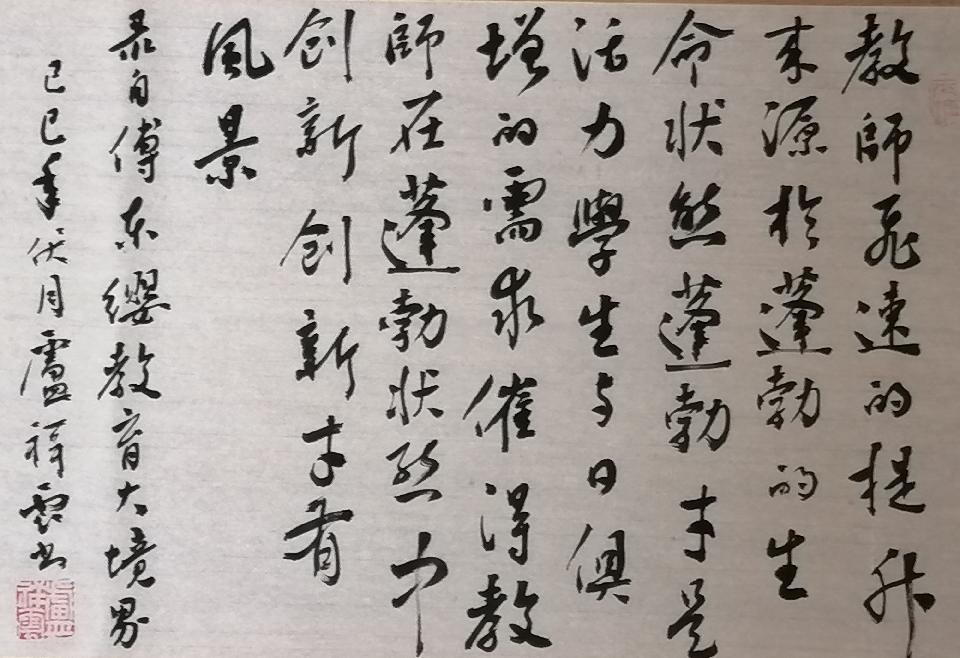 教師飛速的提升
來源於蓬勃的生
命狀態蓬勃才是
活力學生与日俱
增的需求催得教
師在蓬勃狀態中
創新創新才有
風景
录自傅东缨教育大境界
己巳年伏月盧祥雲书